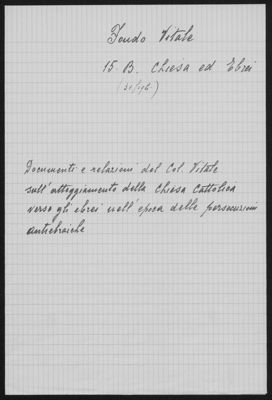 Fondo Vitale
15 B. Chiesa ed Ebrei
Documenti e relazioni del Col. Vitale
sull'atteggiamento della Chiesa Cattolica
verso gli ebrei nell'epoca delle persecuzioni
antiebraiche